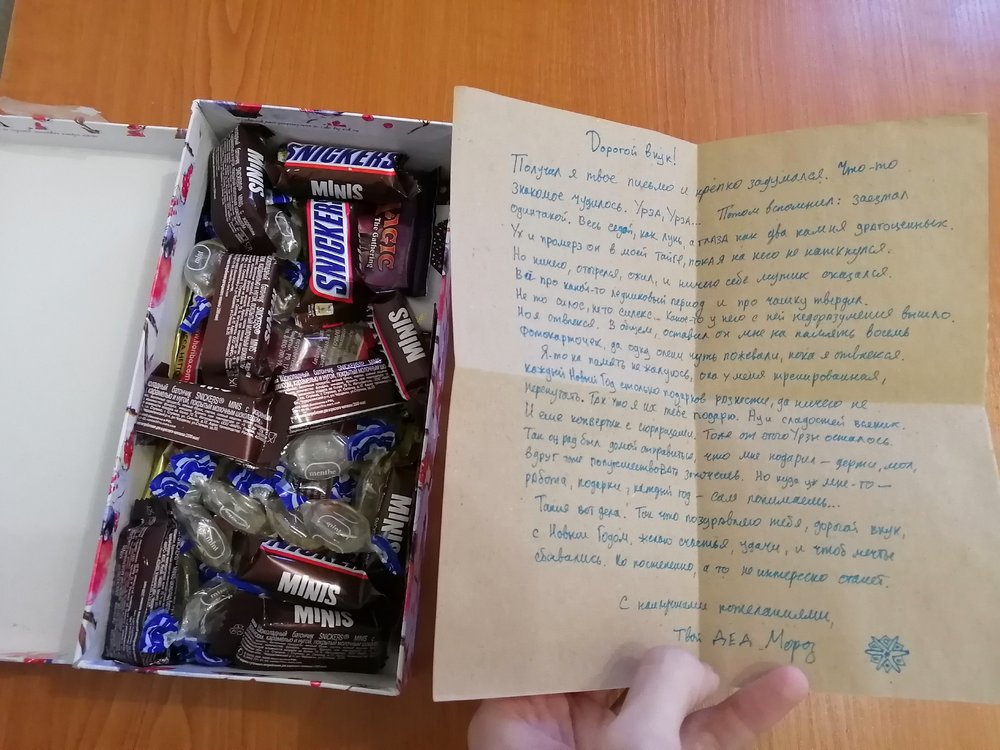 Дорогой внук!
Получил я твоё письмо и крепко задумался. Что-то
знакомое чудилось. Урза, Урза... Потом вспомнил: заещтал
одинтакой. Весь седой, как лунь, а глаза как два камня драгоценных.
Ух и промёрз он в моей тайге, покуда я на него не наткнулся.
Но ничего, отогрелся, ожил, и ничего себе мужик оказался.
Всё про какой-то ледниковый период и про чашку твердил.
Не то силос, не то силекс... Какое-то у него с ней недоразумение вышло.
Но я отвлёкся. В общем, оставил он мне на память восемь
фотокарточек, да одну олени чуть пожевали, пока я отвлёкся.
Я-то на память не жалуюсь, она у меня тренированная,
каждый Новый Год столько подарков разнести, да ничего не
перепутать. Так что я их тебе подарю. Ну и сладостей всяких.
И ещё конвертик с сюрпризами. Тоже от этого Урзы осталось.
Так он рад был домой отправиться, что мне подарил - держи, мол,
вдруг тоже попутешествовать захочешь. Но куда уж мне-то -
работа, подарки, каждый год - сам понимаешь...
Такие вот дела! Так что поздравляю тебя, дорогой внук,
с Новым Годом, желаю счастья, удачи, и чтоб мечты
сбывались. Но постепенно, а то неинтересно станет.
С наилучшими пожеланиями,
Твой ДЕД Мороз
SNICKERS
MINIS
MINIS
SNICKERS
MAGIC
The Gathering
MINIS
menthe
MINIS
MINIS
MINIS
шоколадный батончик SNICKERS® MINIS с